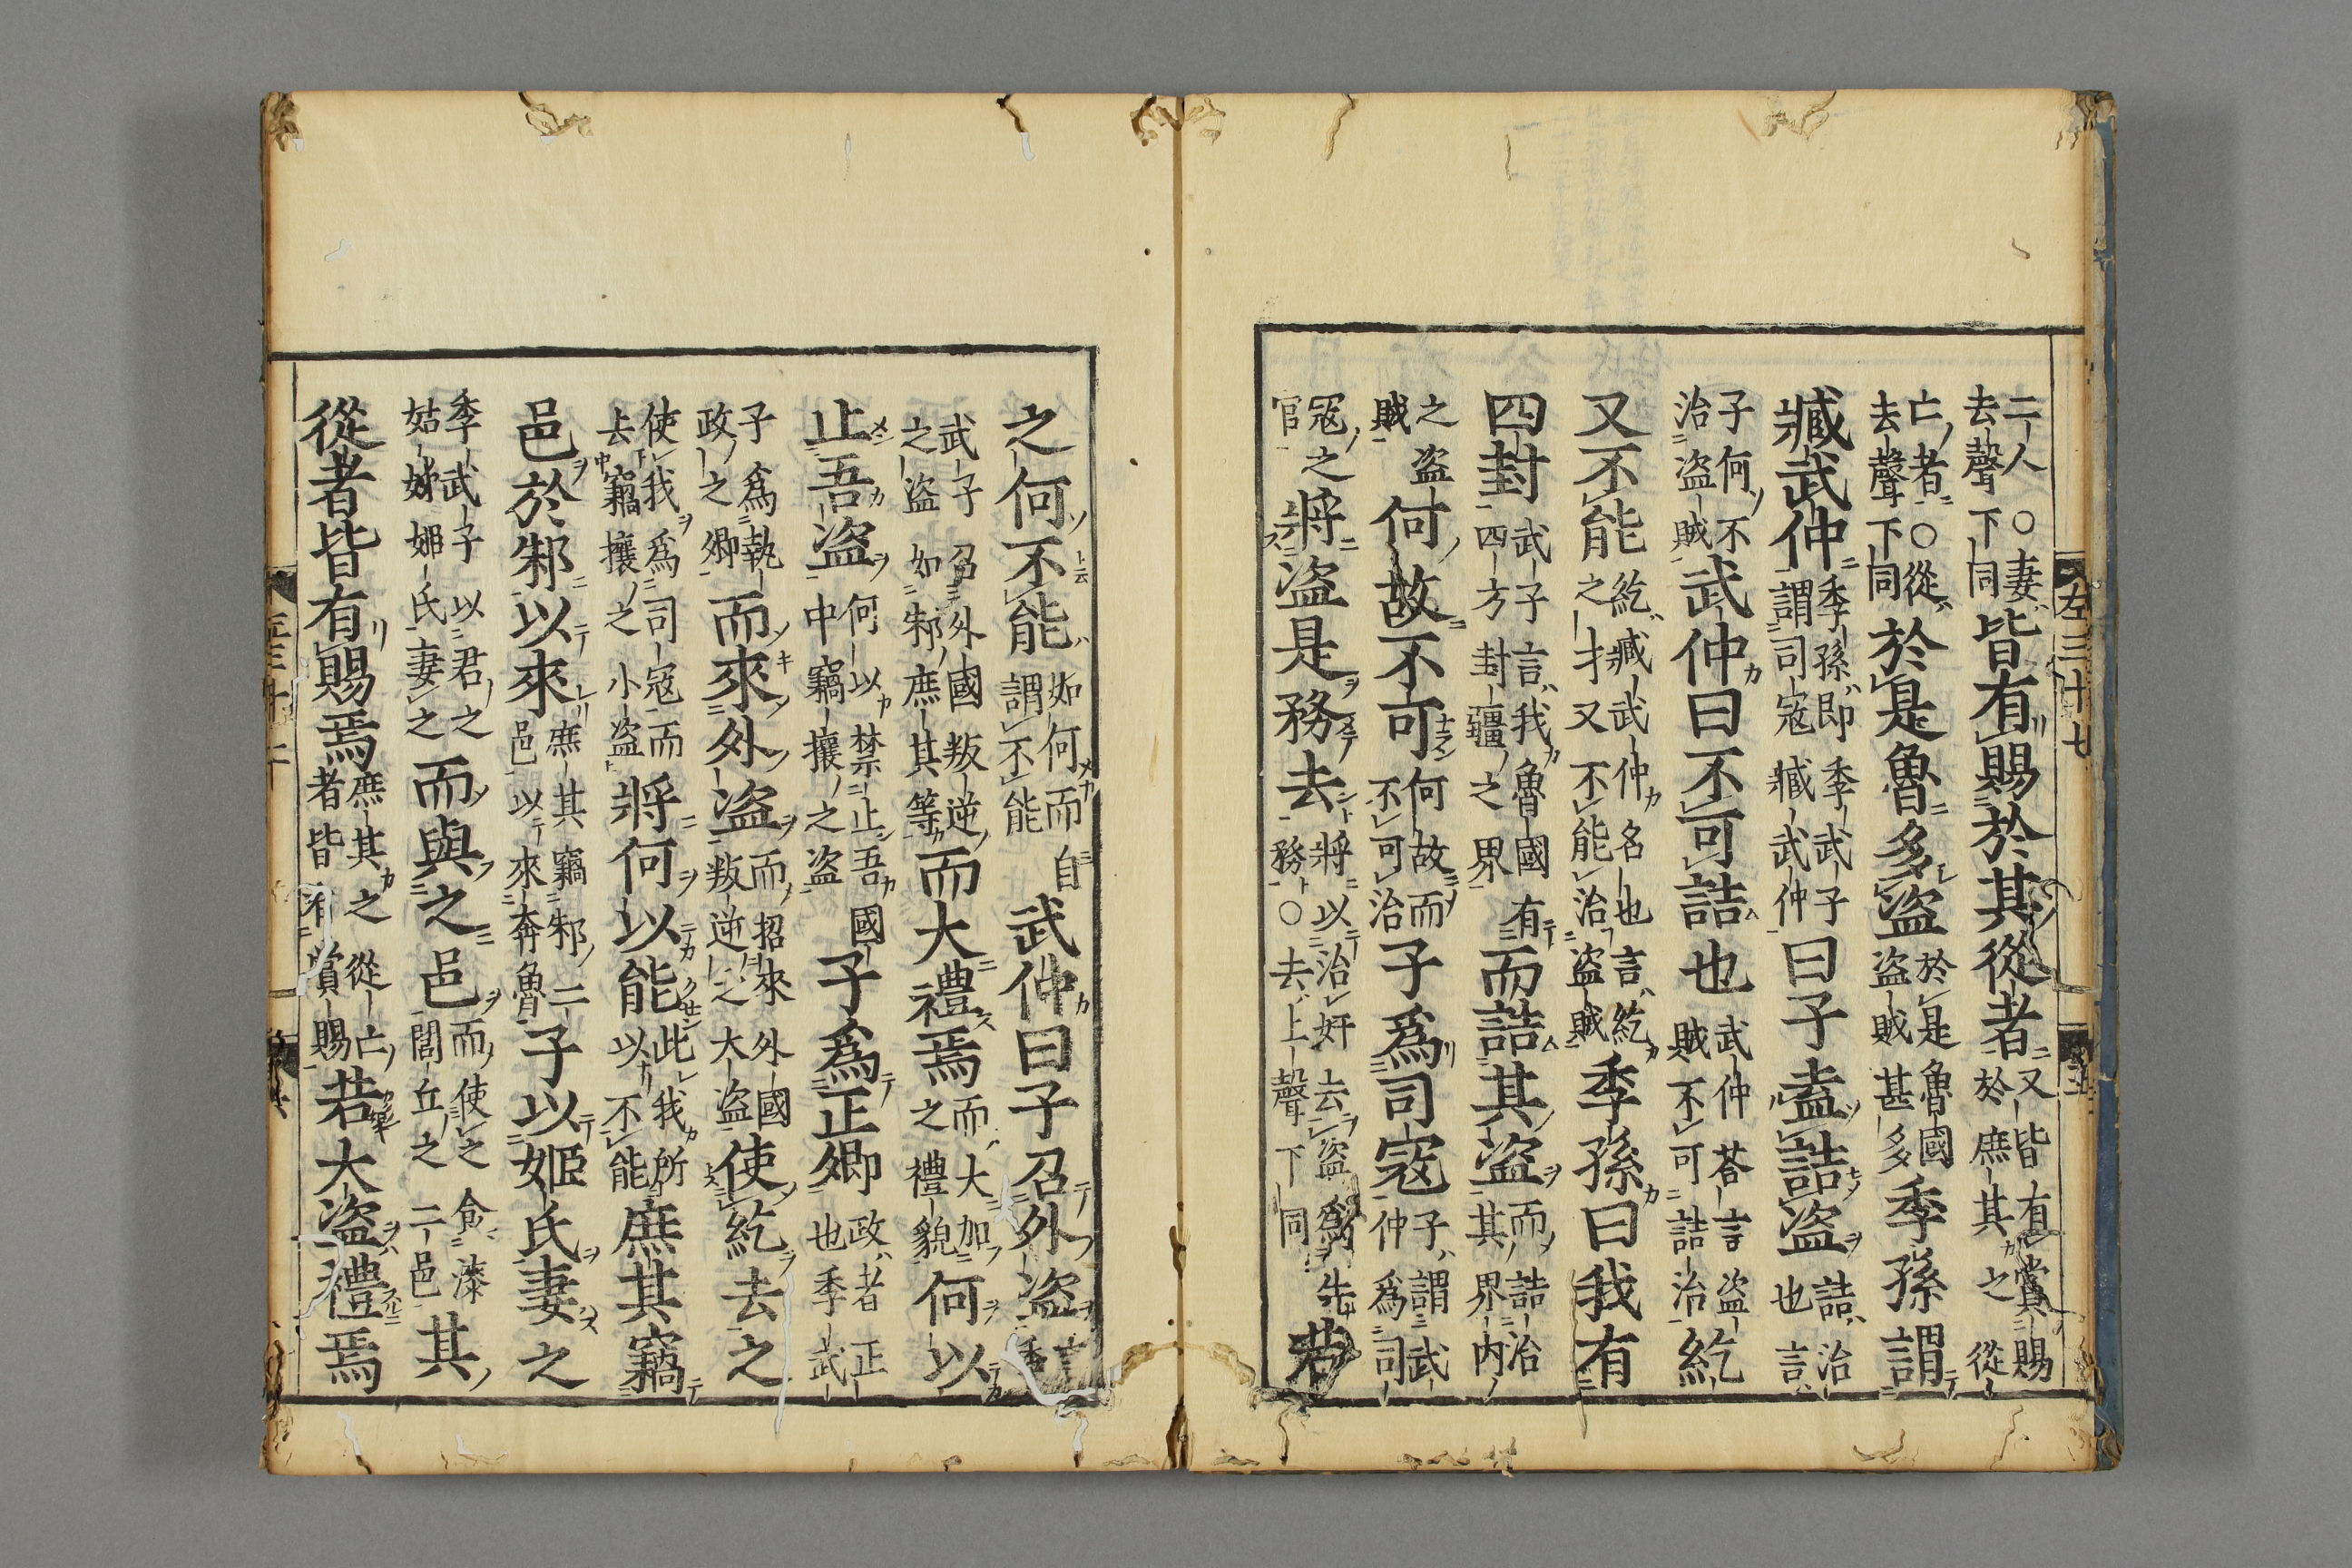 二人○妻去聲下同皆有賜於其從者又皆有賞賜於庶其之從
亡者○從去聲下同於是魯多盜於是魯國盜賊甚多季孫謂
臧武仲季孫即季武子謂司寇臧武仲曰子盍詰盜詰治也言
子何不治盜賊武仲曰不可詰也武仲荅言盜賊不可詰治紇
又不能紇臧武仲名也言紇之才又不能治盜賊季孫曰我有
四封武子言我魯國有四方封疆之界而詰其盜而詰治其界内
之盜賊何故不可何故而不可治子爲司寇子謂武仲爲司
寇之官將盜是務去將以治奸去盜爲先務○去上聲下同若
之何不能如何而自謂不能武仲曰子召外盜
武子召外國叛逆之盜如邾庶其等而大禮焉而大加之禮貌何以
止吾盜何以禁止吾國中竊攘之盜子爲正卿政者正也季武
子爲執政之卿而來外盜而招來外國叛逆之大盜使紇去之
使我爲司寇而去竊攘之小盜將何以能此我所以不能庶其竊
邑於邾以來庶其竊邾二邑以來奔魯子以姬氏妻之
季武子以君之姑姊姬氏妻之而與之邑而使之食漆閭丘之二邑其
從者皆有賜焉庶其之從亡者皆有賞賜若大盜禮焉
左三十七